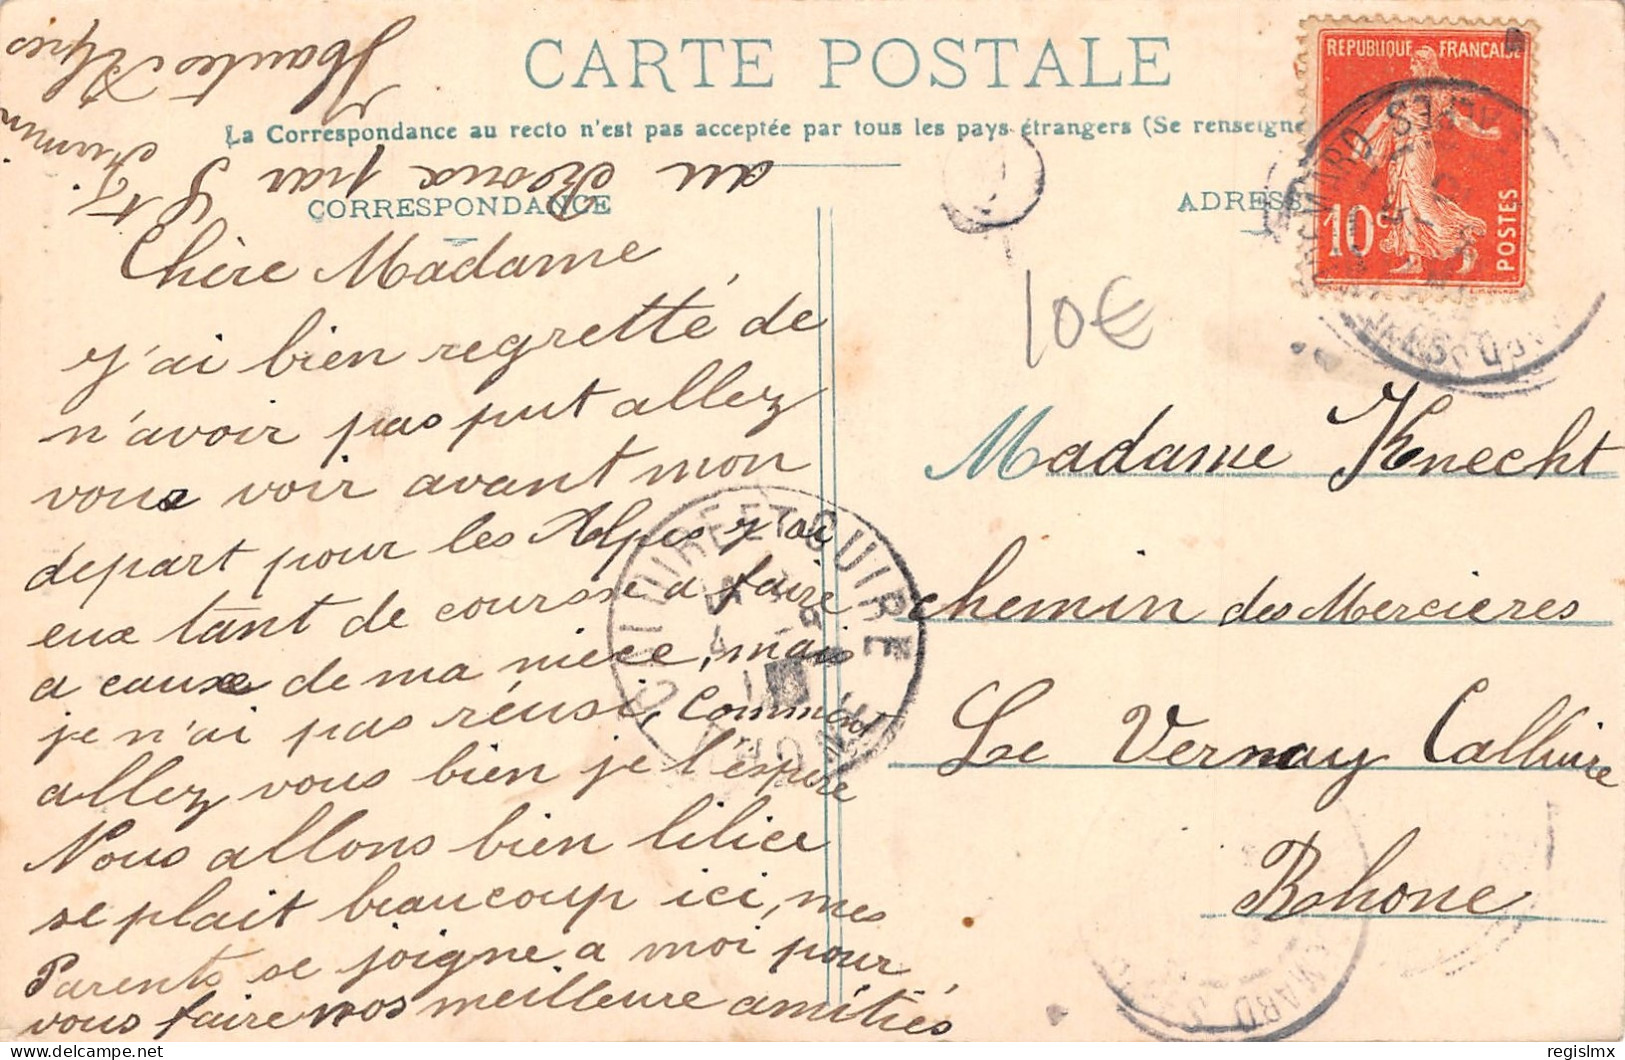 CARTE POSTALE
La Correspondance au recto n'est pas acceptée par tous les pays étrangers (Se renseigne
CORRESPONDANCE
ADRESS
REPUBLIQUE FRANÇAISE
10c
POSTES
au Roux par
St Firmin
Hautes Alpes
Chère Madame
j'ai bien regretté de
n'avoir pas put allez
vous voir avant mon
depart pour les Alpes j'ai
eux tant de course a faire
a cause de ma niece, mais
je n'ai pas réusi, Comment
allez vous bien je l'espère
Nous allons bien lilice
se plait beaucoup ici, mes
Parents se joigne a moi pour
vous faire nos meilleure amitiés
10€
Madame Knecht
chemin des Mercieres
Le Vernay Calluire
Rhone
CALUIRE ET CUIRE
regislmx